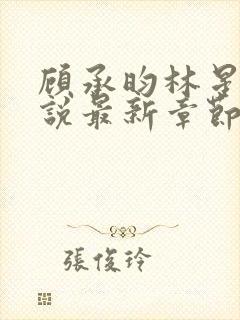 顾承昀林星
說最新章節
張俊玲